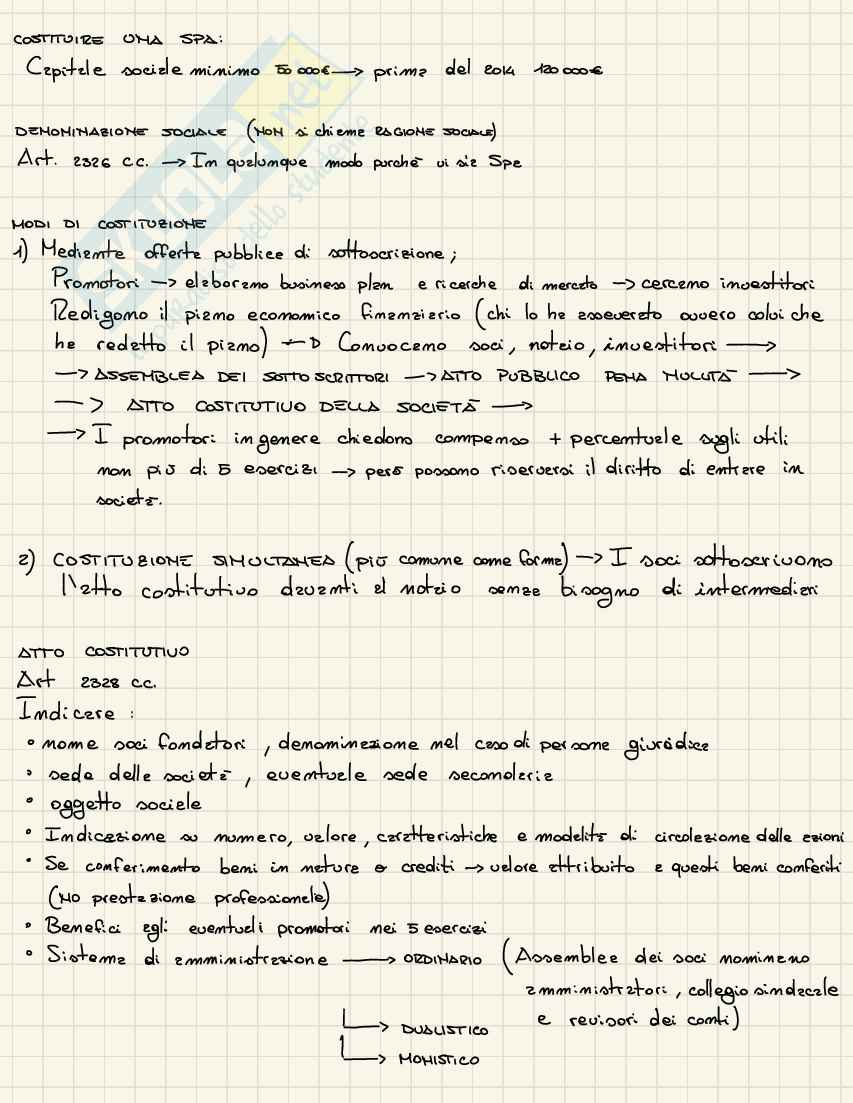 COSTITUIRE UNA SPA:
Capitale sociale minimo 50 000€ → prima del 2014 120 000€
DENOMINAZIONE SOCIALE (NON si chiama RAGIONE SOCIALE)
Art. 2326 c.c. → In qualunque modo purchè vi sia Spa
MODI DI COSTITUZIONE
1) Mediante offerta pubblica di sottoscrizione;
Promotori → elaborano business plan e ricerche di mercato → cercano investitori
Redigono il piano economico finanziario (chi lo ha asseverato ovvero colui che
ha redatto il piano) → Convocano soci, notaio, investitori →
→ ASSEMBLEA DEI SOTTOSCRITTORI → ATTO PUBBLICO PENA NULLITÀ →
→ ATTO COSTITUTIVO DELLA SOCIETÀ →
→ I promotori in genere chiedono compenso + percentuale sugli utili
non più di 5 esercizi → però possono riservarsi il diritto di entrare in
società.
2) COSTITUZIONE SIMULTANEA (più comune come forma) → I soci sottoscrivono
l'atto costitutivo davanti al notaio senza bisogno di intermediari
ATTO COSTITUTIVO
Art 2328 c.c.
Indicare :
• nome soci fondatori , denominazione nel caso di persone giuridica
• sede della società , eventuale sede secondaria
• oggetto sociale
• Indicazione su numero, valore, caratteristiche e modalità di circolazione delle azioni
• Se conferimento beni in natura o crediti → valore attribuito a questi beni conferiti
(NO prestazione professionale)
• Benefici agli eventuali promotori nei 5 esercizi
• Sistema di amministrazione → ORDINARIO (Assemblea dei soci nominano
amministratori, collegio sindacale
e revisori dei conti)
→ DUALISTICO
→ MONISTICO
SKUOLA.net